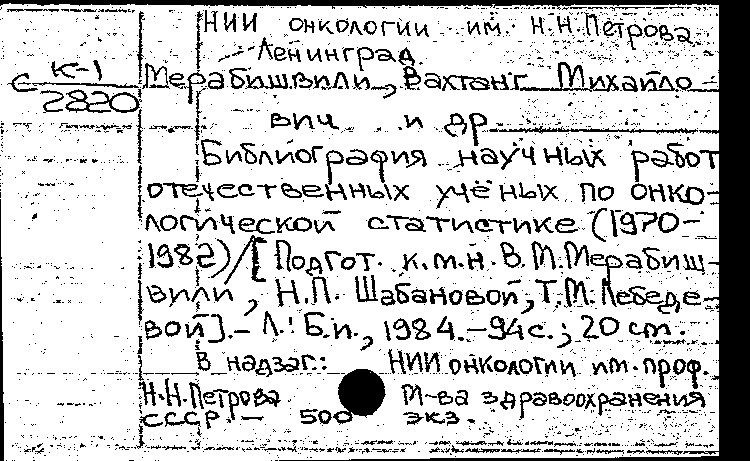 НИИ онкологии им. Н.Н.Петрова
Ленинград
с К-1
2820
Мерабишвили, Вахтанг Михайло-
вич и др
Библиография научных работ
отечественных учёных по онко-
логической статистике (1970-
1982)/[Подгот. к.м.н. В.М.Мерабиш-
вили, Н.П. Шабановой, Т.М.Лебеде-
вой]. - Л.: Б.и., 1984. - 94 с.; 20 см.
В надзаг.: НИИ онкологии им. проф.
Н.Н.Петрова М-ва здравоохранения
СССР. - 500 экз.